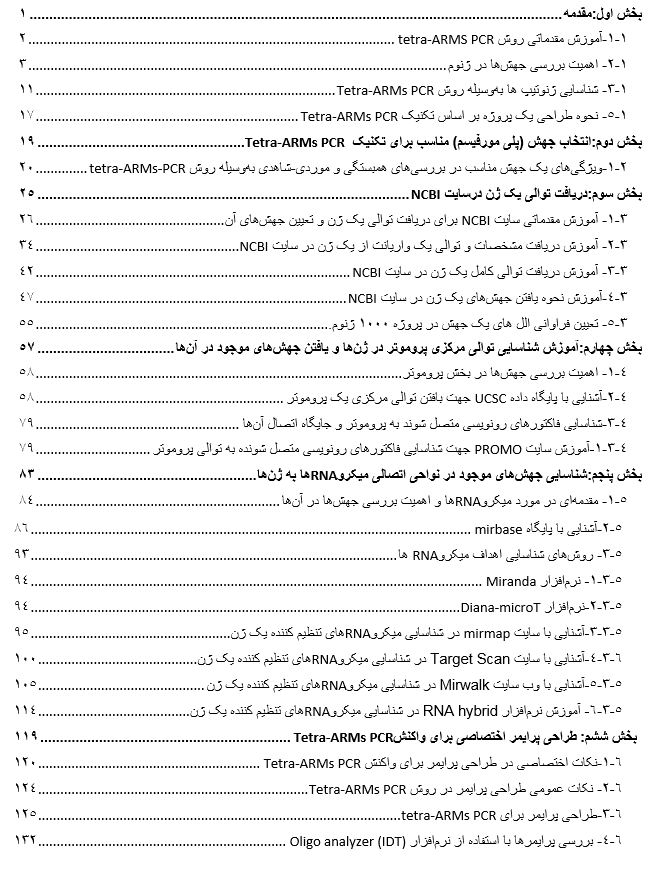 بخش اول:مقدمه ........ ۱
۱-۱-آموزش مقدماتی روش tetra-ARMS PCR ........ ۲
۱-۲- اهمیت بررسی جهش‌ها در ژنوم ........ ۳
۱-۳- شناسایی ژنوتیپ ها به‌وسیله روش Tetra-ARMs PCR ........ ۱۱
۱-۵- نحوه طراحی یک پروژه بر اساس تکنیک Tetra-ARMs PCR ........ ۱۷
بخش دوم:انتخاب جهش (پلی مورفیسم) مناسب برای تکنیک Tetra-ARMs PCR ........ ۱۹
۲-۱-ویژگی‌های یک جهش مناسب در بررسی‌های همبستگی و موردی-شاهدی به‌وسیله روش tetra-ARMs-PCR ........ ۲۰
بخش سوم:دریافت توالی یک ژن درسایت NCBI ........ ۲۵
۳-۱- آموزش مقدماتی سایت NCBI برای دریافت توالی یک ژن و تعیین جهش‌های آن ........ ۲۶
۳-۲- آموزش دریافت مشخصات و توالی یک واریانت از یک ژن در سایت NCBI ........ ۳۴
۳-۳- آموزش دریافت توالی کامل یک ژن در سایت NCBI ........ ۴۲
۳-۴-آموزش نحوه یافتن جهش‌های یک ژن در سایت NCBI ........ ۴۷
۳-۵- تعیین فراوانی الل های یک جهش در پروژه ۱۰۰۰ ژنوم ........ ۵۵
بخش چهارم:آموزش شناسایی توالی مرکزی پروموتر در ژن‌ها و یافتن جهش‌های موجود در آن‌ها ........ ۵۷
۴-۱- اهمیت بررسی جهش‌ها در بخش پروموتر ........ ۵۸
۴-۲-آشنایی با پایگاه داده UCSC جهت یافتن توالی مرکزی یک پروموتر ........ ۵۸
۴-۳-شناسایی فاکتورهای رونویسی متصل شوند به پروموتر و جایگاه اتصال آن‌ها ........ ۷۹
۴-۳-۱-آموزش سایت PROMO جهت شناسایی فاکتورهای رونویسی متصل شونده به توالی پروموتر ........ ۷۹
بخش پنجم:شناسایی جهش‌های موجود در نواحی اتصالی میکروRNAها به ژن‌ها ........ ۸۳
۵-۱- مقدمه‌ای در مورد میکروRNAها و اهمیت بررسی جهش‌ها در آن‌ها ........ ۸۴
۵-۲-آشنایی با پایگاه mirbase ........ ۸۶
۵-۳- روش‌های شناسایی اهداف میکروRNA ها ........ ۹۳
۵-۳-۱- نرم‌افزار Miranda ........ ۹۴
۵-۳-۲-نرم‌افزار Diana-microT ........ ۹۴
۵-۳-۳-آشنایی با سایت mirmap در شناسایی میکروRNAهای تنظیم کننده یک ژن ........ ۹۵
۶-۳-۴-آشنایی با سایت Target Scan در شناسایی میکروRNAهای تنظیم کننده یک ژن ........ ۱۰۰
۵-۳-۵-آشنایی با وب سایت Mirwalk در شناسایی میکروRNAهای تنظیم کننده یک ژن ........ ۱۰۵
۵-۳-۶- آموزش نرم‌افزار RNA hybrid در شناسایی میکروRNAهای تنظیم کننده یک ژن ........ ۱۱۴
بخش ششم: طراحی پرایمر اختصاصی برای واکنش Tetra-ARMs PCR ........ ۱۱۹
۶-۱-نکات اختصاصی در طراحی پرایمر برای واکنش Tetra-ARMs PCR ........ ۱۲۰
۶-۲- نکات عمومی طراحی پرایمر در روش Tetra-ARMs PCR ........ ۱۲۴
۶-۳-طراحی پرایمر برای tetra-ARMs PCR ........ ۱۲۵
۶-۴- بررسی پرایمرها با استفاده از نرم‌افزار Oligo analyzer (IDT) ........ ۱۳۲